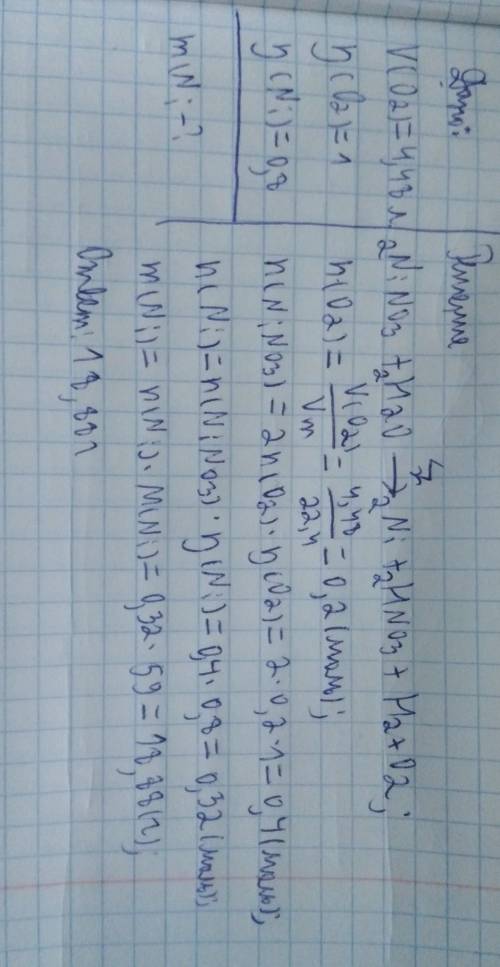 Дано:
V(O2)=4,48 л
η(O2)=1
η(Ni)=0,8
m(Ni-?
Решение
2NiNO3 + 2H2O → 2Ni + 2HNO3 + H2 + O2;
n(O2) = V(O2)/Vm = 4,48/22,4 = 0,2 (моль);
n(NiNO3) = 2n(O2)·η(O2) = 2·0,2·1 = 0,4 (моль);
n(Ni) = n(NiNO3)·η(Ni) = 0,4·0,8 = 0,32 (моль);
m(Ni) = n(Ni)·M(Ni) = 0,32·59 = 18,88 (г);
Ответ: 18,88 г